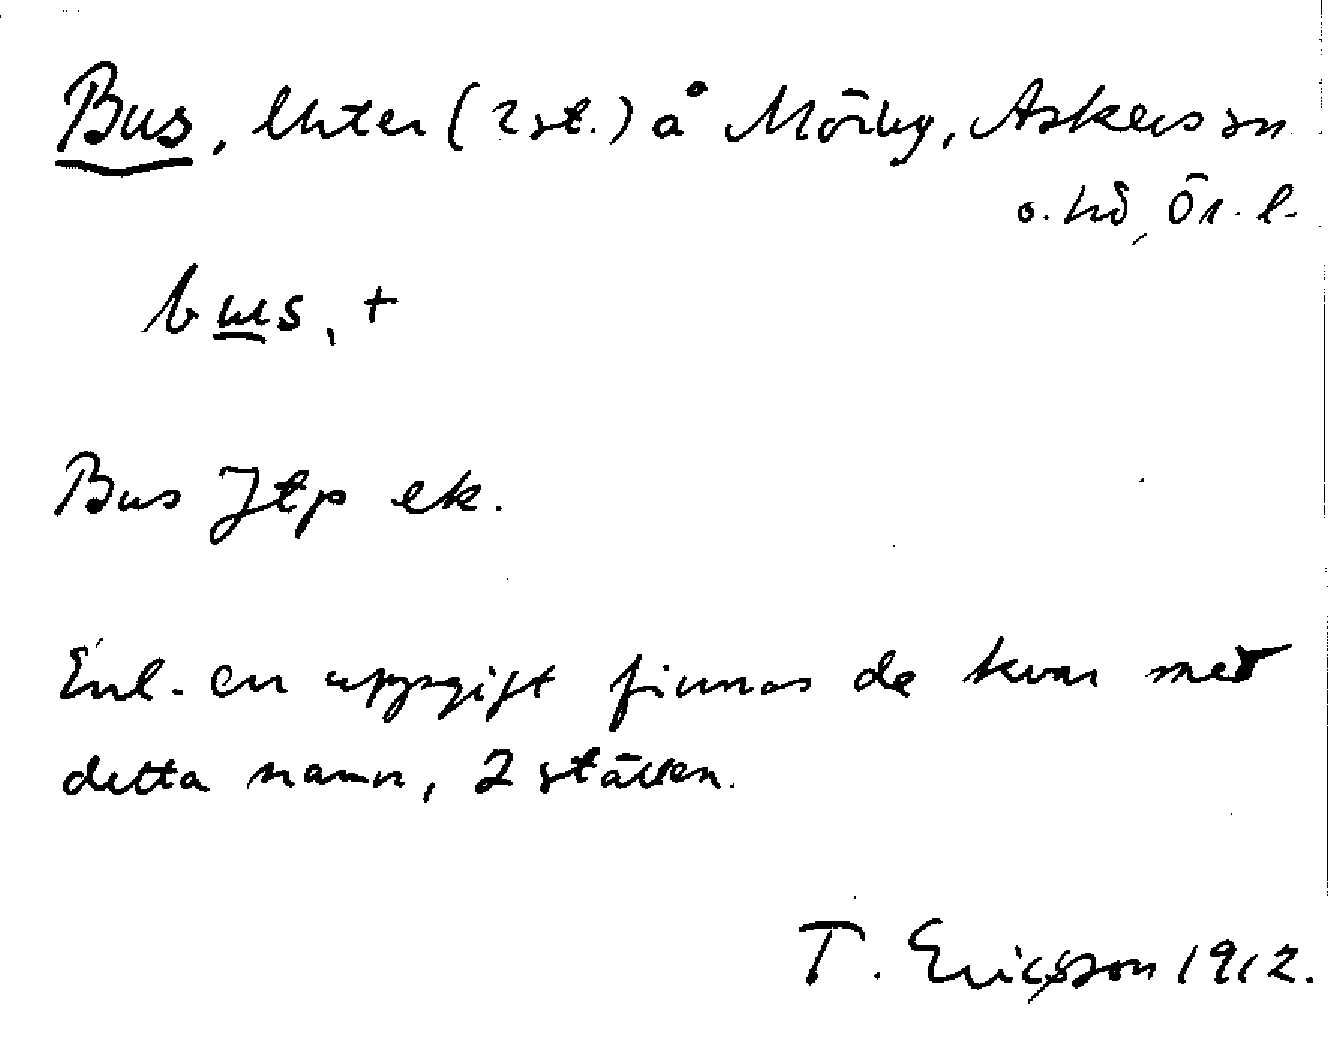 Bus, lhter (2 st.) å Mörby, Askers sn
o. hd, Ör. l.
bus, +
Bus Jtp ek.
Enl. en uppgift finnas de kvar med
detta namn, 2 ställen.
T. Ericsson 1912.